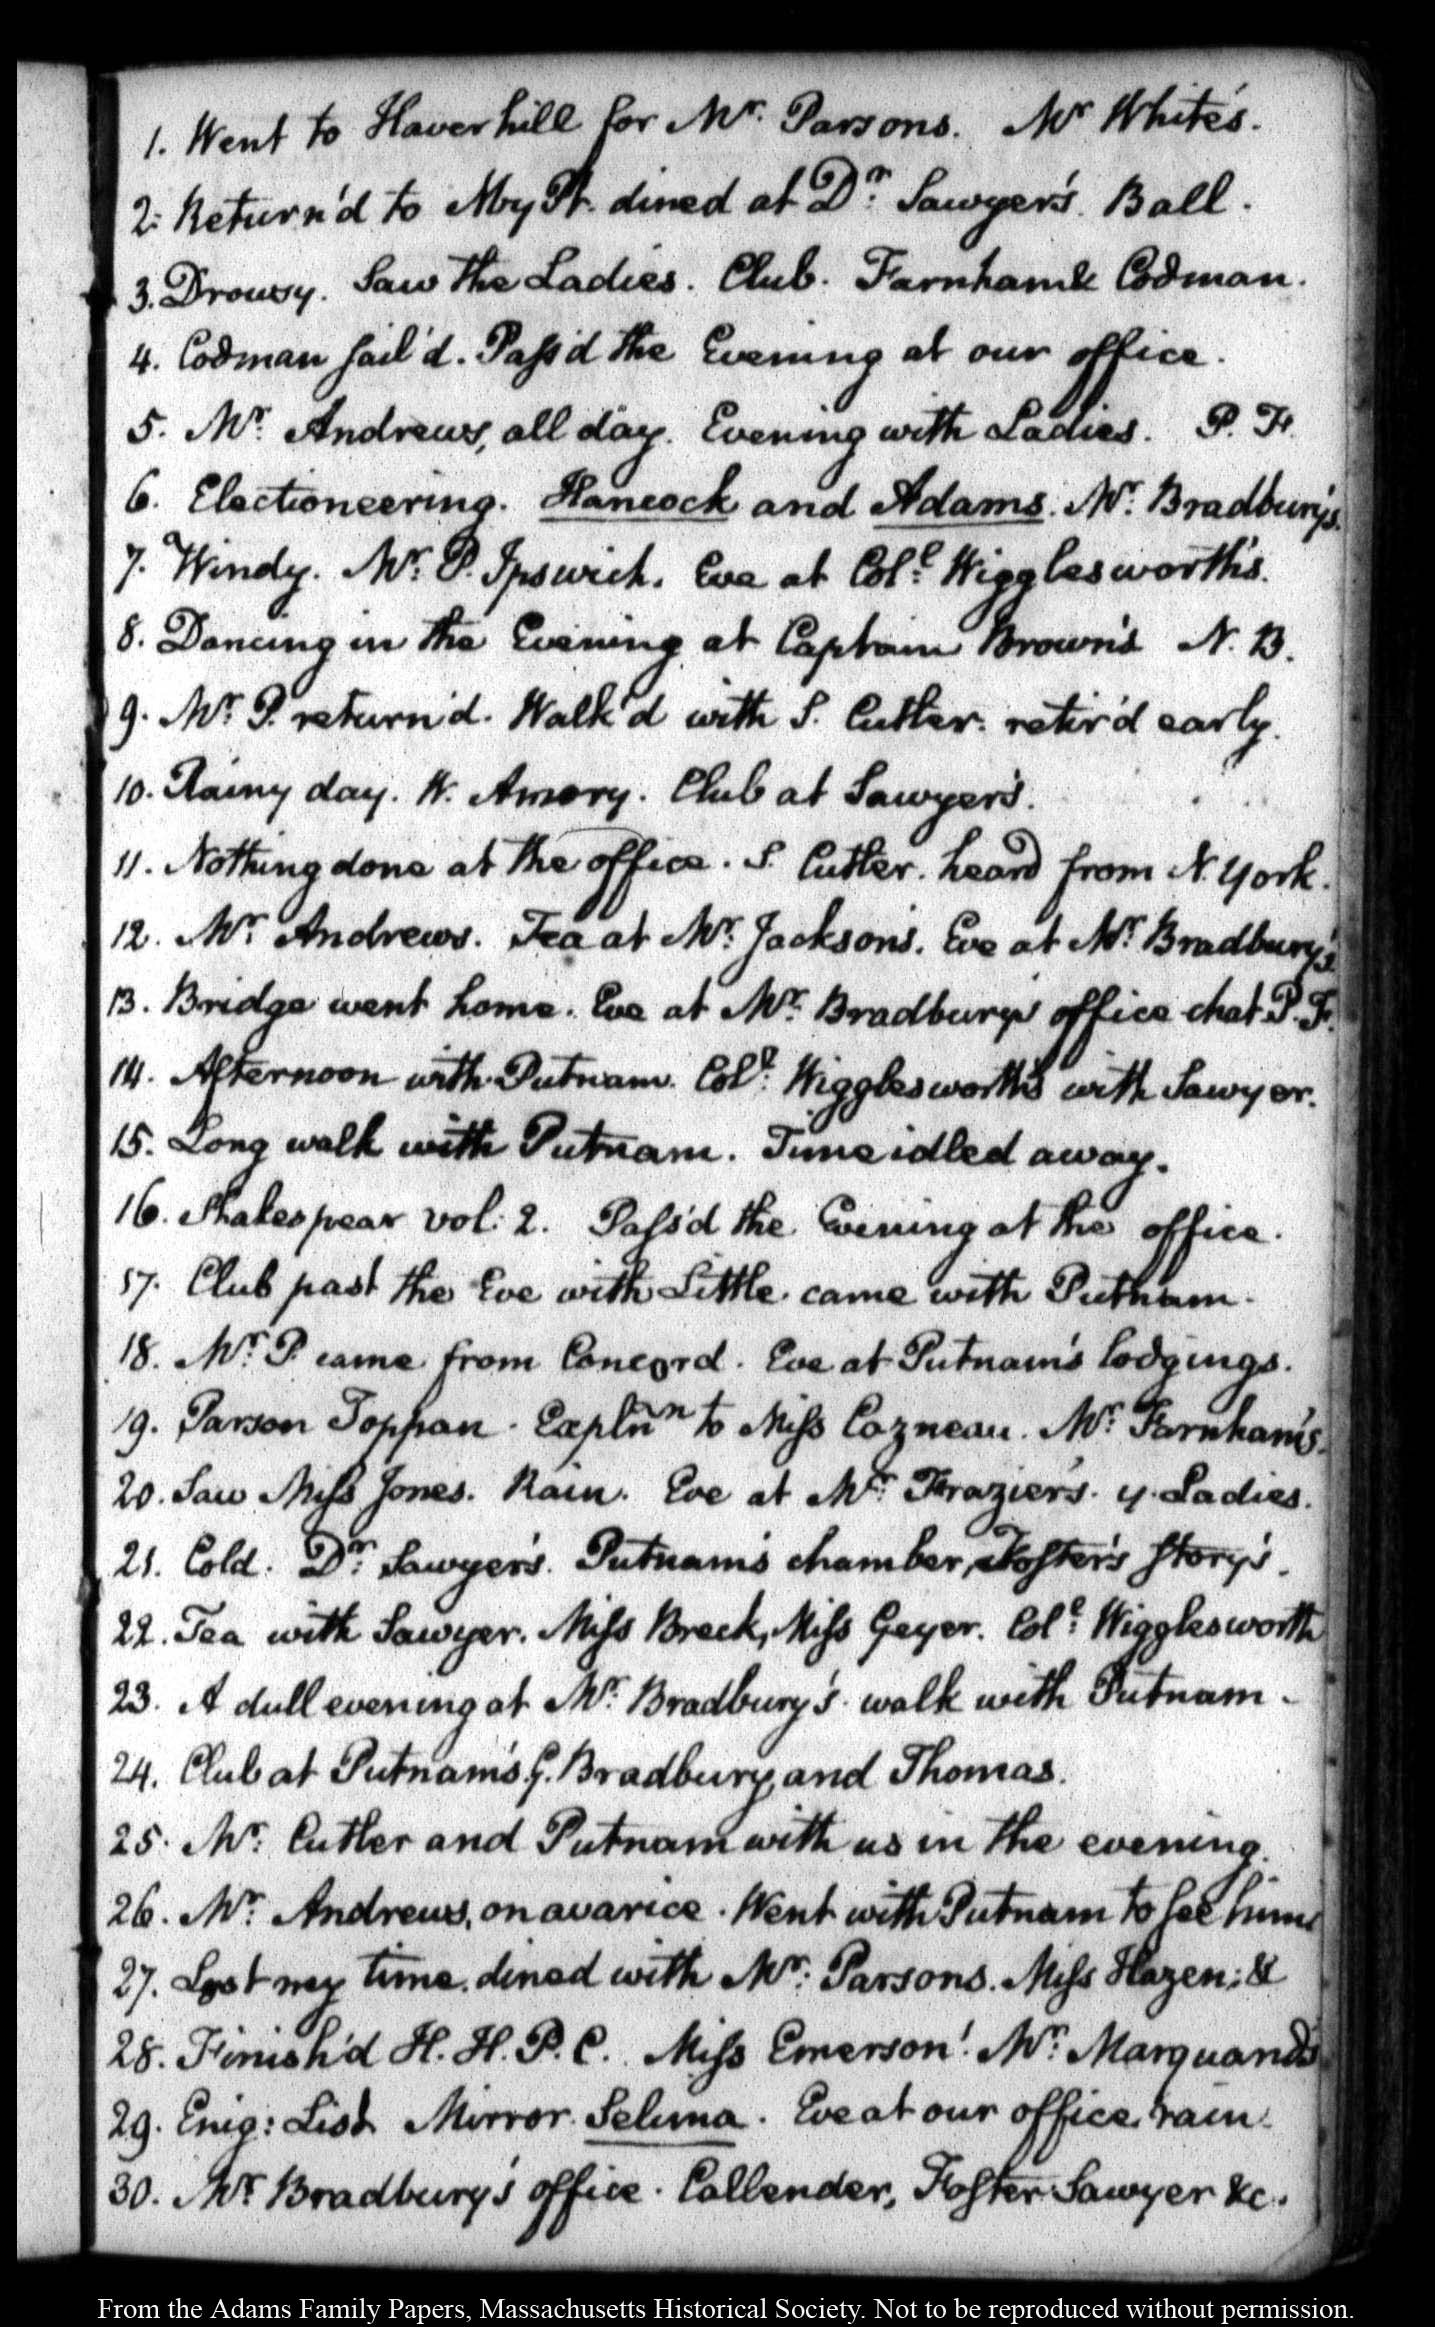 1. Went to Haverhill for Mr. Parsons. Mr White's.
2. Return'd to Nby Pt. dined at Dr. Sawyer's. Ball.
3. Drowsy. Saw the Ladies. Club. Farnham & Codman.
4. Codman sail'd. Pass'd the Evening at our office.
5. Mr. Andrews, all day. Evening with Ladies. P. Fr.
6. Electioneering. Hancock and Adams. Mr. Bradbury's.
7. Windy. Mr. P. Ipswich. Eve at Coll. Wigglesworth's.
8. Dancing in the Evening at Captain Brown's N. B.
9. Mr. P. return'd. Walk'd with S. Cutler. retir'd early.
10. Rainy day. W. Amory. Club at Sawyer's.
11. Nothing done at the office. S. Cutler. heard from N. York.
12. Mr. Andrews. Tea at Mr. Jackson's. Eve at Mr. Bradbury's
13. Bridge went home. Eve at Mr. Bradbury's office chat P. F.
14. Afternoon with Putnam. Coll. Wigglesworth's with Sawyer.
15. Long walk with Putnam. Time idled away.
16. Shakespear vol: 2. Pass'd the Evening at the office.
17. Club past the Eve with Little. came with Putnam.
18. Mr. P. came from Concord. Eve at Putnam's lodgings.
19. Parson Toppan. Expln'n to Miss Cazneau. Mr. Farnham's.
20. Saw Miss Jones. Rain. Eve at Mr. Frazier's. y. Ladies.
21. Cold. Dr. Sawyer's. Putnam's chamber, Foster's story's.
22. Tea with Sawyer. Miss Breck, Miss Geyer. Coll. Wigglesworth
23. A dull evening at Mr. Bradbury's. walk with Putnam.
24. Club at Putnam's. G. Bradbury, and Thomas.
25. Mr. Cutler and Putnam with us in the evening.
26. Mr. Andrews, on avarice. Went with Putnam to see him
27. Lost my time. dined with Mr. Parsons. Miss Hazen; &
28. Finish'd H. H. P. C. Miss Emerson! Mr. Marquand's
29. Enig: List Mirror. Selima. Eve at our office. rain.
30. Mr. Bradbury's office. Callender, Foster Sawyer &c.
From the Adams Family Papers, Massachusetts Historical Society. Not to be reproduced without permission.